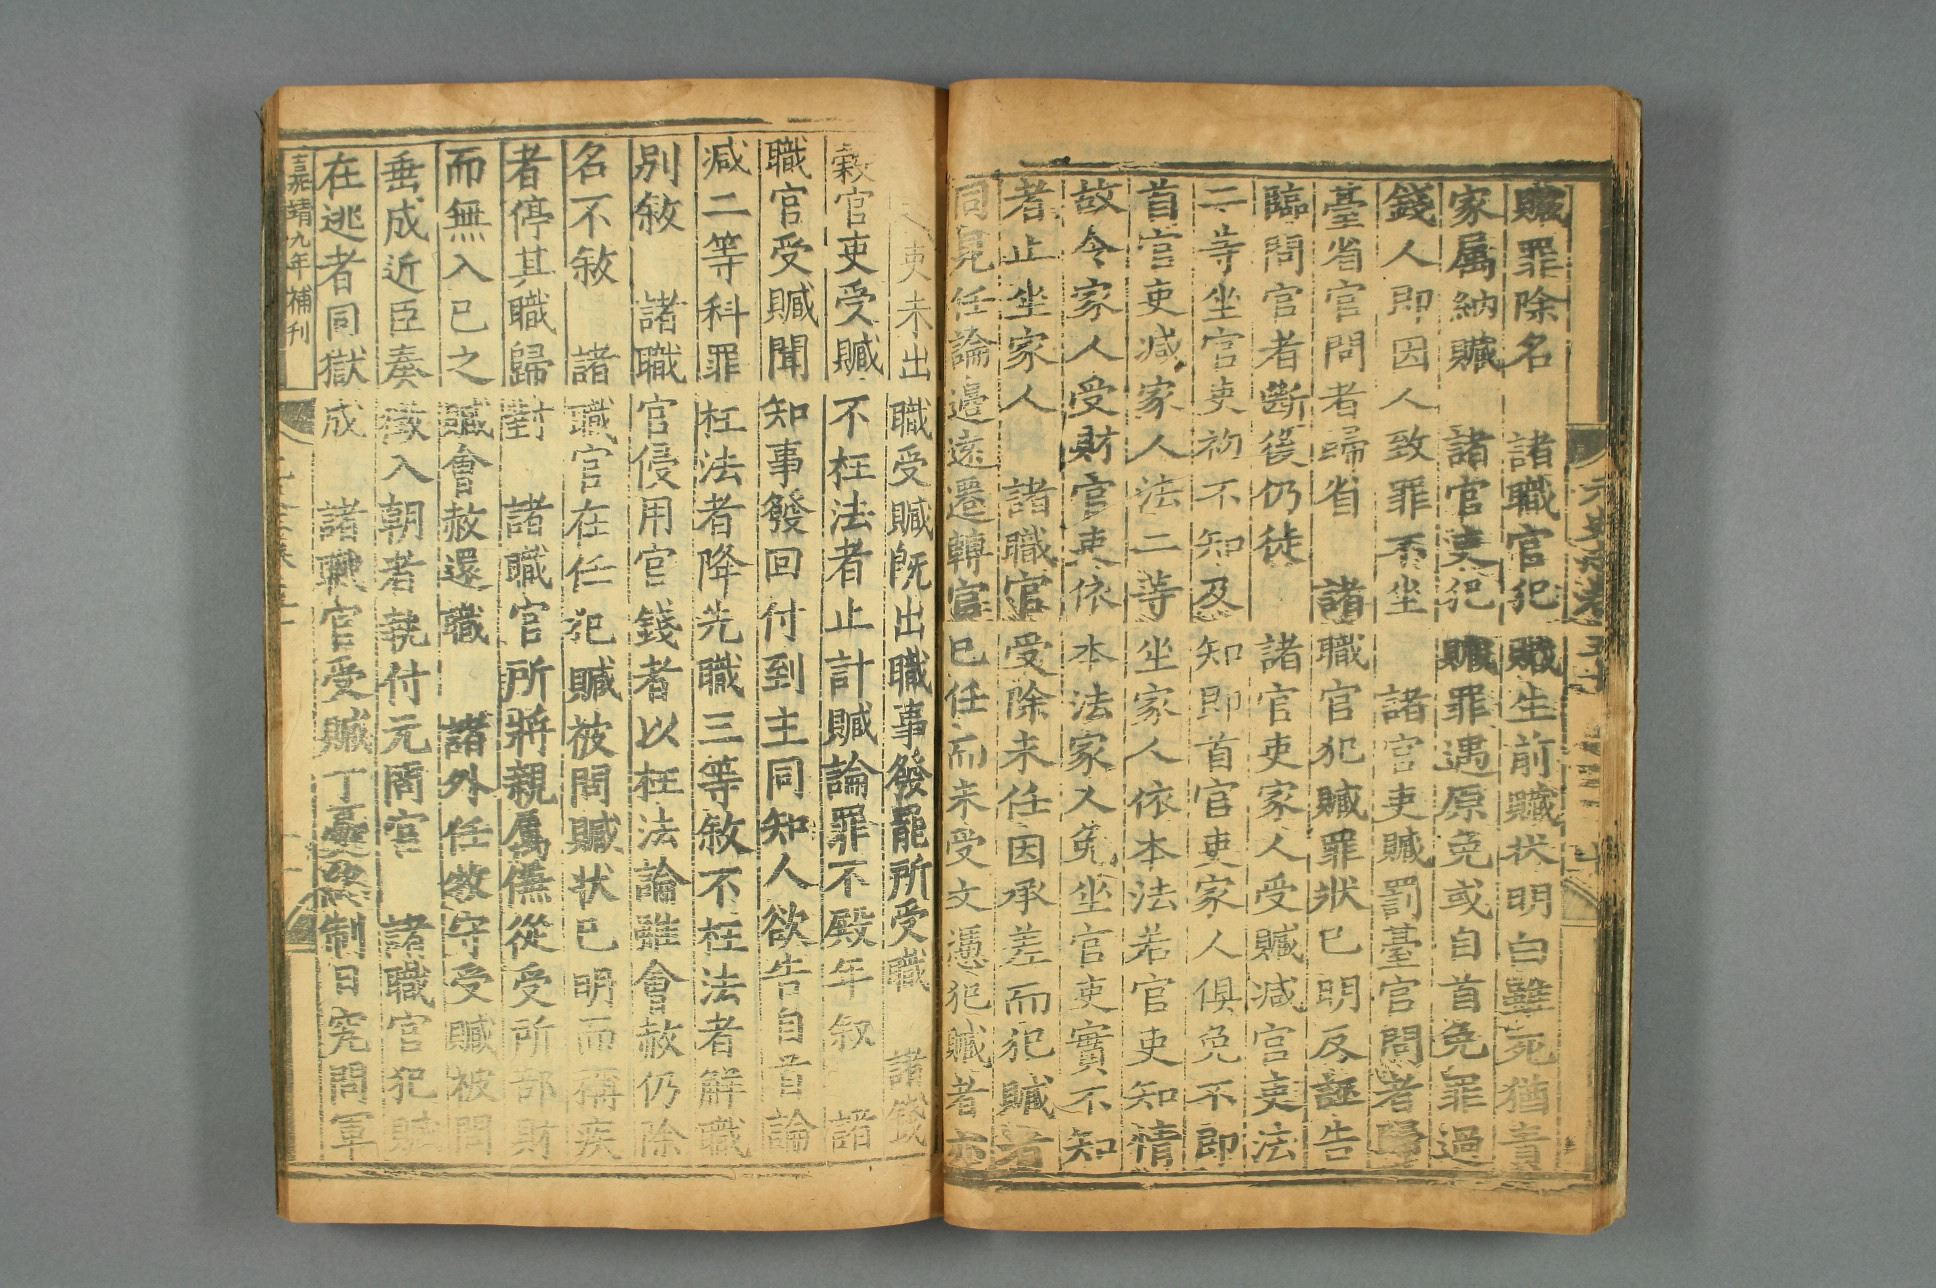 元史志卷五十
贓罪除名　諸職官犯贓生前贓状明白雖死猶責
家属納贓　諸官吏犯贓罪遇原免或自首免罪過
錢人即因人致罪不坐　諸官吏贓罰䑓官問者歸
臺省官問者歸省　諸職官犯贓罪状已明反誣告
臨問官者断後仍徒　諸官吏家人受贓减官吏法
二等坐官吏初不知及知即首官吏家人俱免不即
首官吏减家人法二等坐家人依本法若官吏知情
故令家人受財官吏依本法家人免坐官吏實不知
者止坐家人　諸職官受除未任因承差而犯贓者
同見任論邊逺遷轉官已任而未受文憑犯贓者亦
吏未出職受贓既出職事發罷所受職　諸錢
穀官吏受贓不枉法者止計贓論罪不殿年叙　諸
職官受贓聞知事發回付到主同知人欲告自首論
减二等科罪枉法者降先職三等敘不枉法者解職
别敘　諸職官侵用官錢者以枉法論雖會赦仍除
名不敘　諸職官在任犯贓被問贓状已明而稱疾
者停其職歸對　諸職官所將親属僕從受所部財
而無入己之贓會赦還職　諸外任牧守受贓被問
垂成近臣奏徵入朝者執付元問官　諸職官犯贓
在逃者同獄成　諸職官受贓丁憂終制日究問軍
嘉靖九年補刊